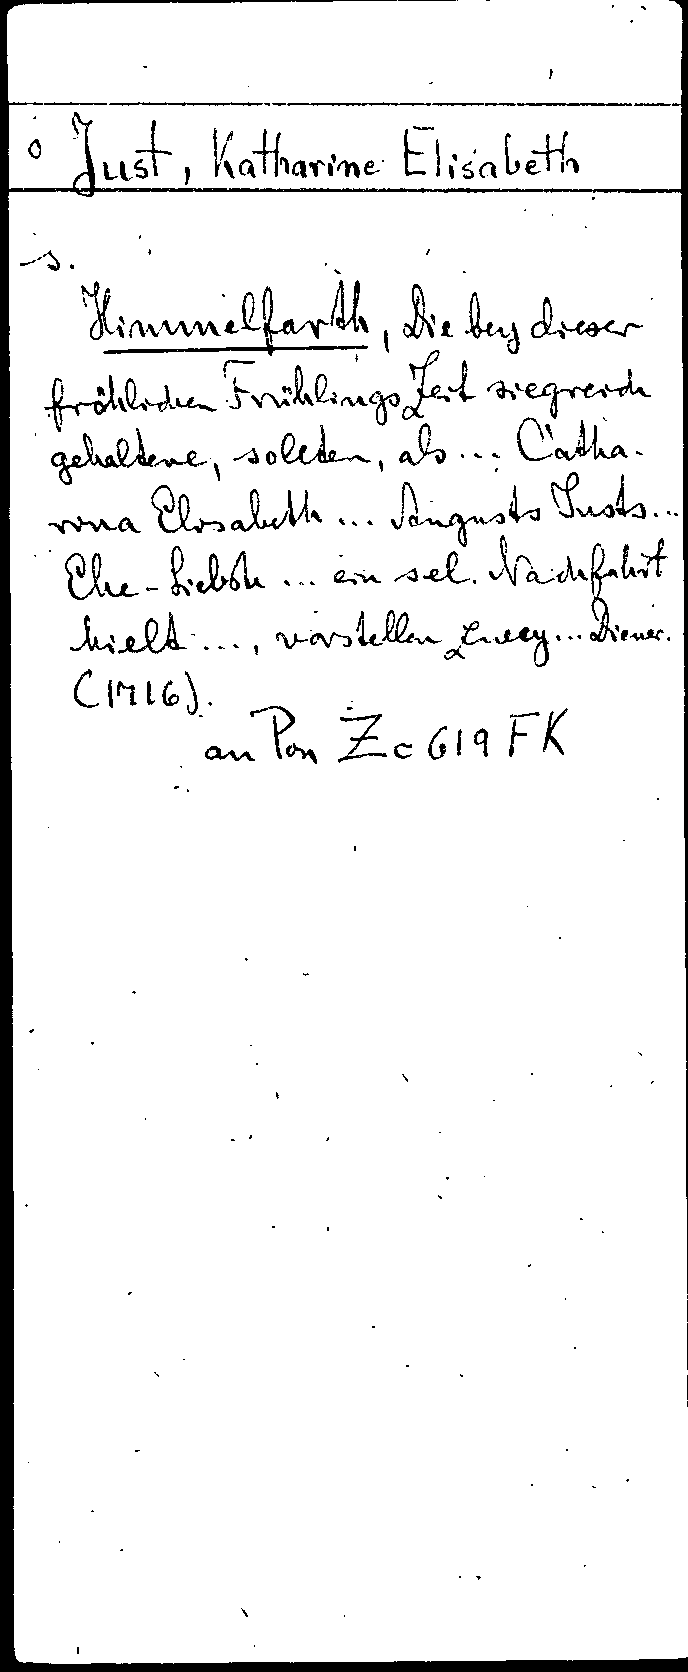 o Just, Katharine Elisabeth
s.
Himmelfarth, Die bey dieser
fröhlichen Frühlings Zeit siegreich
gehaltene, sollten, als ... Catha-
rina Elisabeth ... Augusts Justs ...
Ehe-Liebste ... ein sel. Nachfahrt
hielt ..., vorstellen zwey ... Diener.
(1716).
an Pon Zc 619 FK